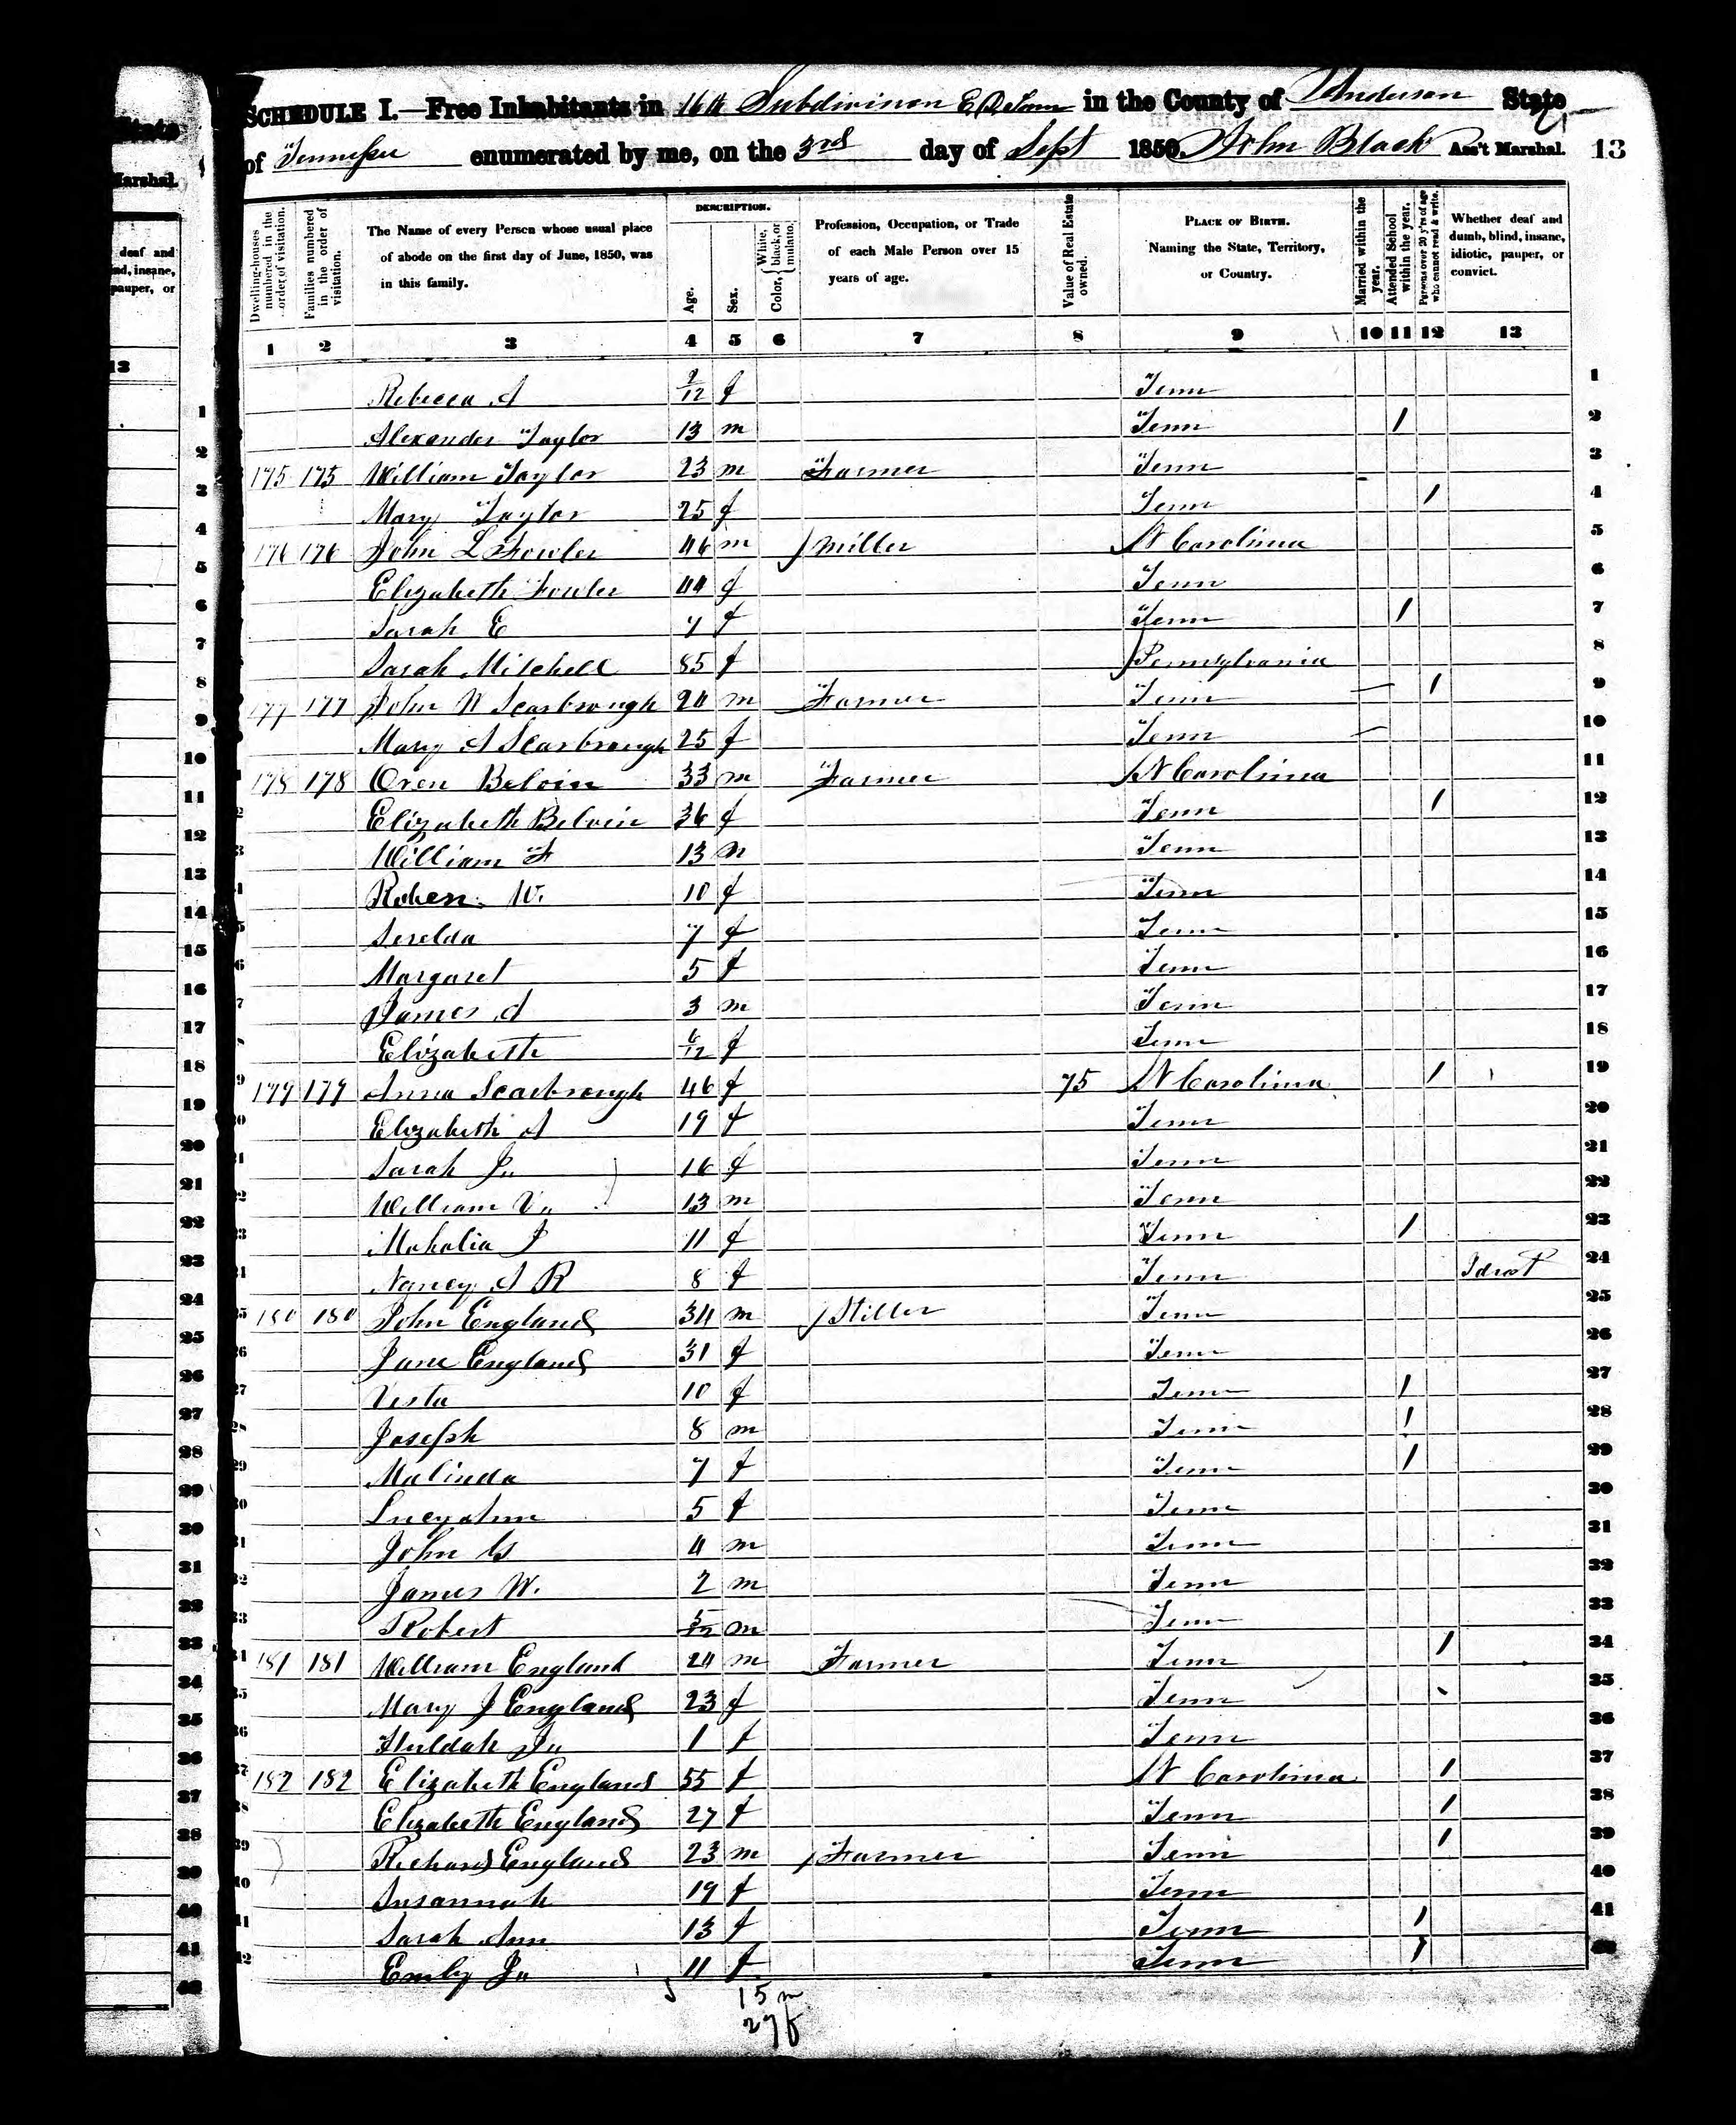 State
Marshal.
deaf and
nd, insane,
pauper, or
13
SCHEDULE I.—Free Inhabitants in 16th Subdivision E D Tenn in the County of Anderson State
of Tennessee enumerated by me, on the 3rd day of Sept 1850. John Black Ass't Marshal. 13
Dwelling-houses numbered in the order of visitation.
Families numbered in the order of visitation.
The Name of every Person whose usual place of abode on the first day of June, 1850, was in this family.
DESCRIPTION.
Age.
Sex.
Color, { White, black, or mulatto.
Profession, Occupation, or Trade of each Male Person over 15 years of age.
Value of Real Estate owned.
PLACE OF BIRTH. Naming the State, Territory, or Country.
Married within the year.
Attended School within the year.
Persons over 20 y'rs of age who cannot read & write.
Whether deaf and dumb, blind, insane, idiotic, pauper, or convict.
1 2 3 4 5 6 7 8 9 10 11 12 13
Rebecca A 9/12 f Tenn 1
Alexander Taylor 13 m Tenn 1 2
175 175 William Taylor 23 m Farmer Tenn 3
Mary Taylor 25 f Tenn 1 4
176 176 John L Fowler 46 m Miller N Carolina 5
Elizabeth Fowler 44 f Tenn 6
Sarah E 7 f Tenn 1 7
Sarah Mitchell 85 f Pennsylvania 8
177 177 John N Scarbrough 24 m Farmer Tenn 1 9
Mary A Scarbrough 25 f Tenn 10
178 178 Oren Belvin 33 m Farmer N Carolina 11
Elizabeth Belvin 36 f Tenn 1 12
William F 13 m Tenn 13
W. 10 f Tenn 14
Serelda 7 f Tenn 15
Margaret 5 f Tenn 16
James A 3 m Tenn 17
Elizabeth 6/12 f Tenn 18
179 179 Anna Scarbrough 46 f 75 N Carolina 1 19
Elizabeth A 19 f Tenn 20
Sarah J. 16 f Tenn 21
William V. 13 m Tenn 22
Mahalia J 11 f Tenn 1 23
Nancy A R 8 f Tenn Idiot 24
180 180 John England 34 m Stiller Tenn 25
Jane England 31 f Tenn 26
Vesta 10 f Tenn 1 27
Joseph 8 m Tenn 1 28
Malinda 7 f Tenn 1 29
Lucy Ann 5 f Tenn 30
John G 4 m Tenn 31
James W. 2 m Tenn 32
Robert 5/12 m Tenn 33
181 181 William England 24 m Farmer Tenn 1 34
Mary J England 23 f Tenn 35
Huldah J. 1 f Tenn 36
182 182 Elizabeth England 55 f N Carolina 1 37
Elizabeth England 27 f Tenn 1 38
Richard England 23 m Farmer Tenn 1 39
Susannah 19 f Tenn 40
Sarah Ann 13 f Tenn 1 41
Emily J. 11 f Tenn 1 42
15 m
27 f